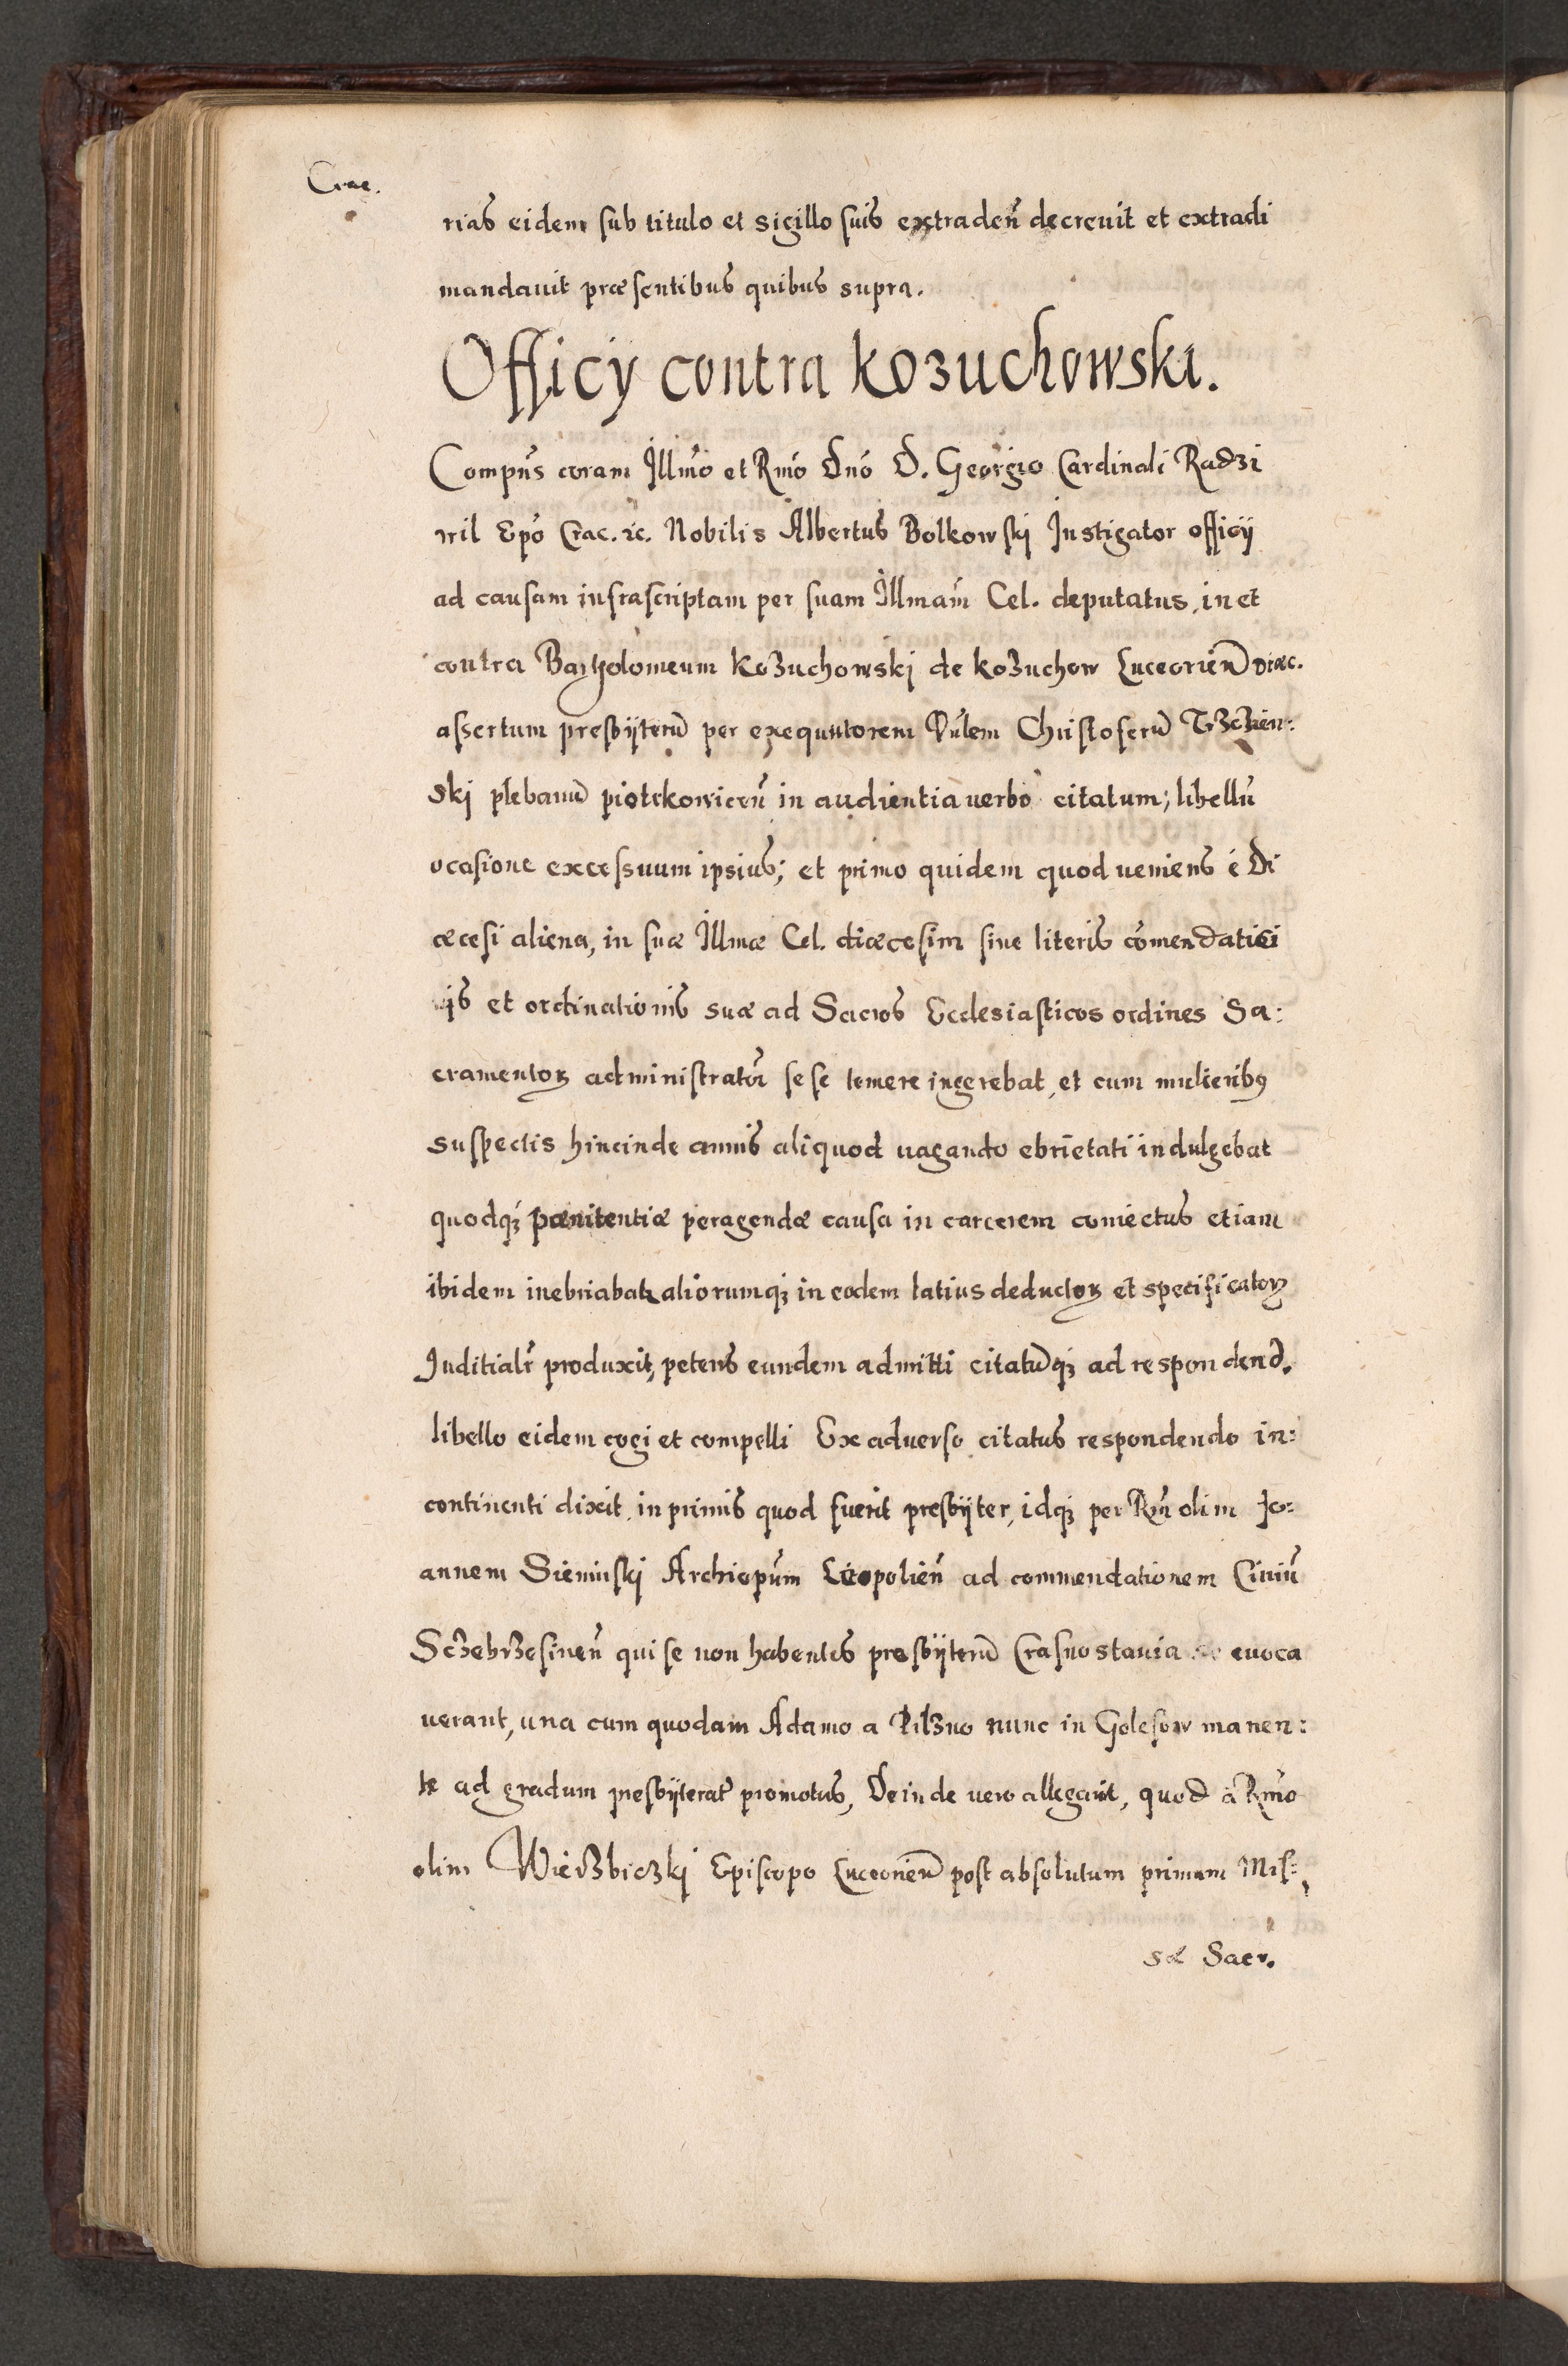 Crac.
rias eidem sub titulo et sigillo suis extraden̄ decreuit et extradi
mandauit præsentibus quibus supra.
Officÿ contra Kozuchowski.
Compn̄s coram Illmō et Rmō Dnō D. Georgio Cardinali Radzi
wil Epō Crac. ꝛc. Nobilis Albertus Bolkowskj Instigator officij
ad causam infrascriptam per suam Illmam̄ Cel. deputatus, in et
contra Bartholomeum Kozuchowskj de Kozuchow Luceorien̄ diæc.
assertum presbÿterū per exequutorem Dn̄lem Christoferū Trzczien:
skj plebanū piotrkowicen̄ in audientia uerbo citatum; libellū
ocasione excessuum ipsius; et primo quidem quod ueniens è Di
œcesi aliena, in suæ Illmæ Cel. diæcesim sine literis cōmendatici
ijs et ordinationis suæ ad Sacros Ecclesiasticos ordines Sa:
cramentoꝝ administratōi sese temere ingerebat, et cum mulieribꝰ
suspectis hincinde annis aliquod uagando ebrietati indulgebat
quodqꝫ pænitentiæ peragendæ causa in carcerem coniectus etiam
ibidem inebriabatꝛ aliorumqꝫ in eodem latius deductoꝝ et specificatoꝝ
Juditialr̄ produxit, petens eundem admitti citatūqꝫ ad respondend̄.
libello eidem cogi et compelli Ex aduerso citatus respondendo in:
continenti dixit, in primis quod fuerit presbÿter, idqꝫ per Rm̄ olim Jo:
annem Sieninskj Archiepūm Leopolien̄ ad commendationem Ciuiū
Sczebrzesinen̄ qui se non habentes presbÿterū Crasnostauia euoca
uerant, una cum quodam Adamo a Pilzno nunc in Golesow manen:
te ad gradum presbÿteratꝰ promotus, Deinde uero allegauit, quod à Rmō
olim Wierzbiczkj Episcopo Luceorien̄ post absolutum primam Mis:
sæ Sacr.